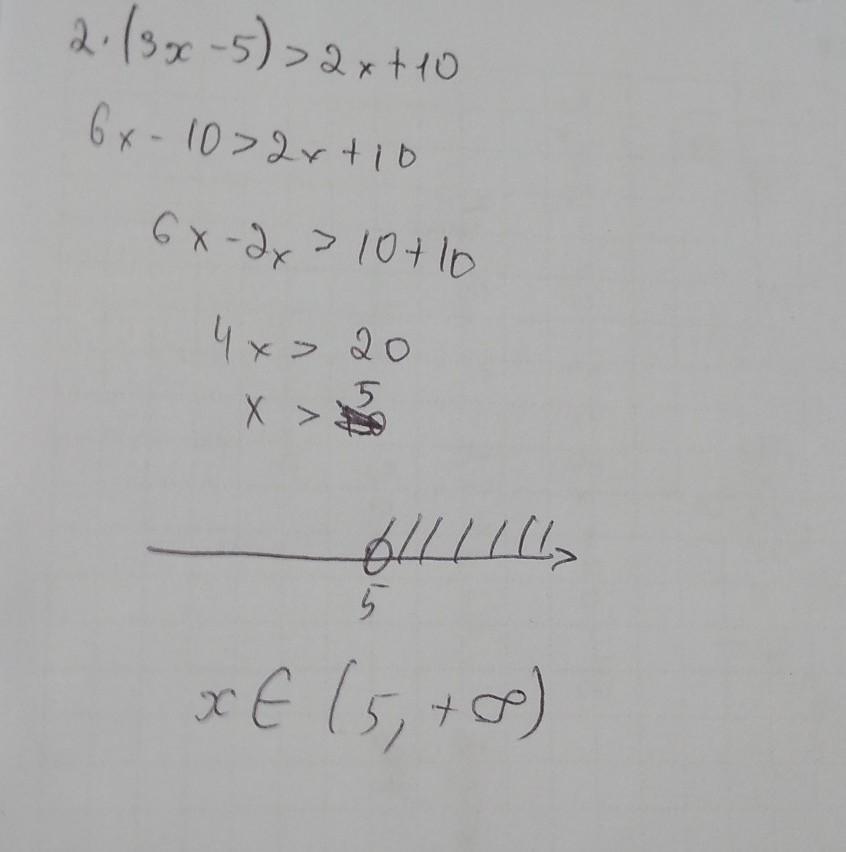 2·(3x-5)>2x+10
6x-10>2x+10
6x-2x>10+10
4x>20
x>5
5
x∈(5,+∞)